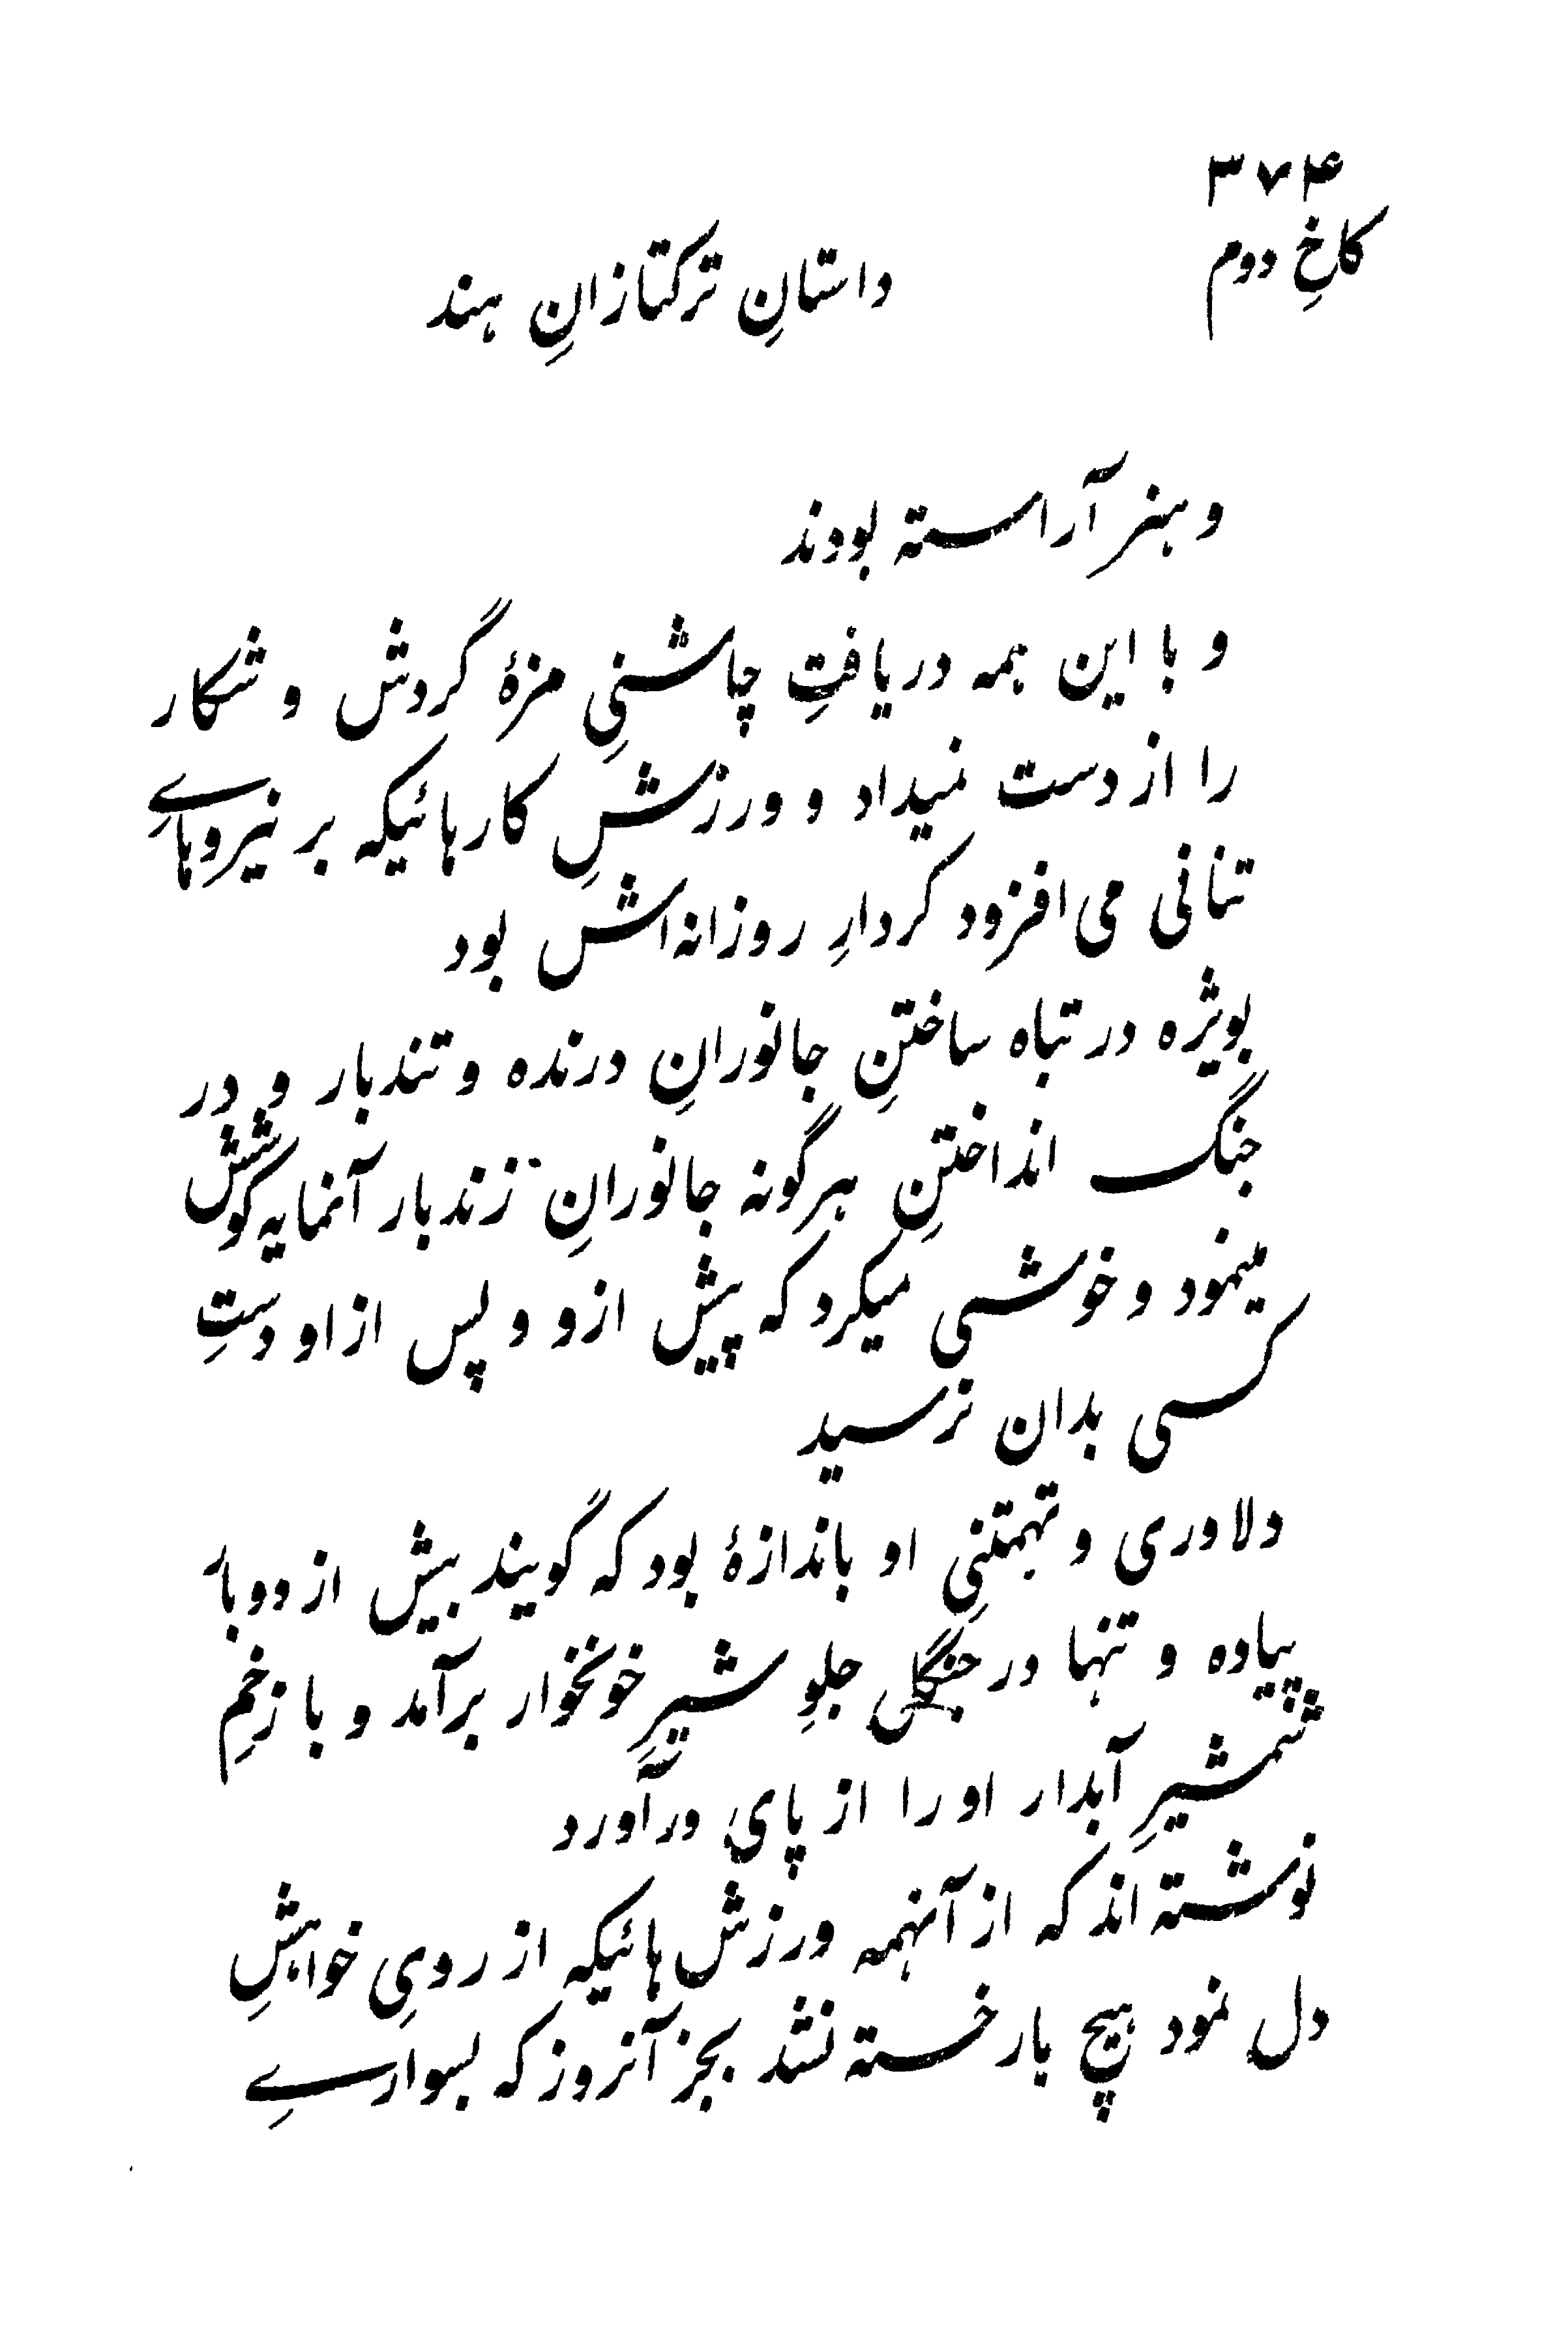 ۳۷۴
کاخِ دوم
داستانِ ترکتازانِ هند
و هنر آراسته بودند
و با این همه دریافتِ چاشنیِ مزهٔ گردش و شکار
را از دست نمیداد و ورزشِ کارهائیکه بر نیروهاےِ
تنانی می افزود کردارِ روزانه‌اش بود
بویژه در تباه ساختنِ جانورانِ درنده و تندبار و در
جنگ انداختنِ هرگونه جانورانِ زندبار آنمایه کوشش
مینمود و خوشی میکرد که پیش ازو و پس از او دستِ
کسی بدان نرسید
دلاوری و تهمتنیِ او باندازهٔ بود که گویند بیش از دوبار
پیاده و تنها در جنگل جلوِ شیرِ خونخوار برآمد و با زخمِ
شمشیرِ آبدار او را از پای درآورد
نوشته‌اند که از آنهمه ورزش‌هائیکه از رویِ خواهشِ
دل نمود هیچ بار خسته نشد بجز آنروز که بسوارےِ